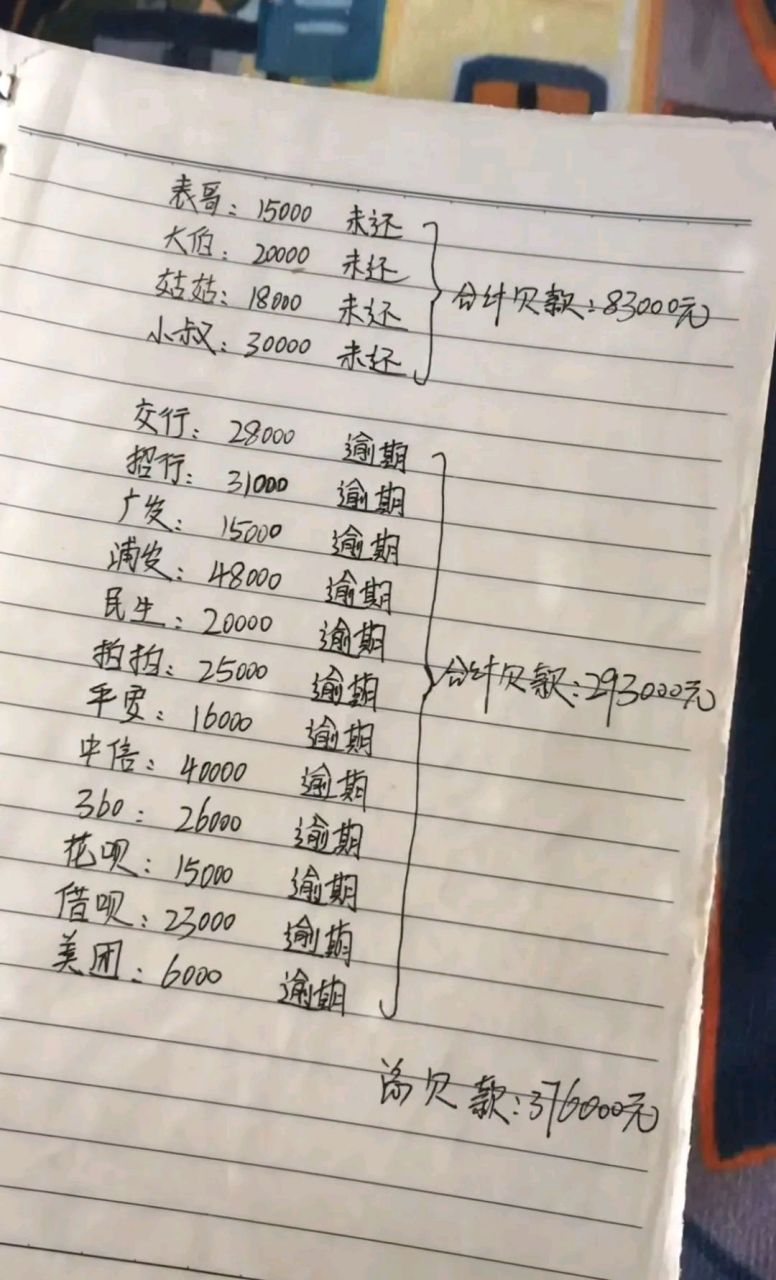 表哥：15000 未还
大伯：20000 未还
姑姑：18000 未还
小叔：30000 未还
合计欠款：83000元
交行：28000 逾期
招行：31000 逾期
广发：15000 逾期
浦发：48000 逾期
民生：20000 逾期
拍拍：25000 逾期
平安：16000 逾期
中信：40000 逾期
360：26000 逾期
花呗：15000 逾期
借呗：23000 逾期
美团：6000 逾期
合计欠款：293000元
总欠款：376000元